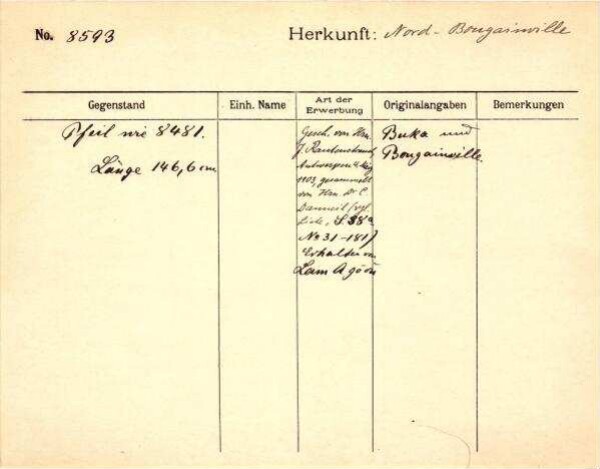 No. 8593
Herkunft: Nord-Bougainville
Gegenstand
Einh. Name
Art der
Erwerbung
Originalangaben
Bemerkungen
Pfeil wie 8481.
Länge 146,6 cm
Gesch. von Hrn.
J. Rautenstrauch,
Antwerpen
1903, gesammelt
von Hrn. Dr C.
Danneil
Liste, S. 38a
No 31-181)
Erhalten von
Lam Agóón
Buka und
Bougainville.